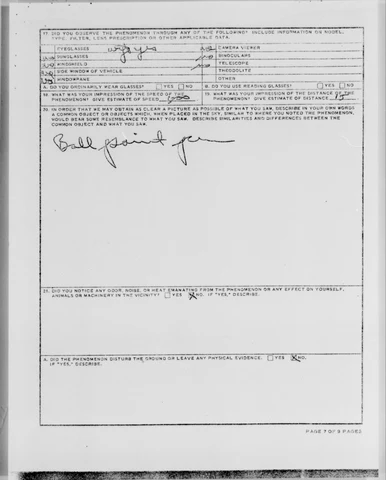 17. DID YOU OBSERVE THE PHENOMENON THROUGH ANY OF THE FOLLOWING? INCLUDE INFORMATION ON MODEL,
TYPE, FILTER, LENS PRESCRIPTION OR OTHER APPLICABLE DATA.
EYEGLASSES yes no CAMERA VIEWER
no SUNGLASSES no BINOCULARS
no WINDSHIELD no TELESCOPE
no SIDE WINDOW OF VEHICLE THEODOLITE
WINDOWPANE OTHER
A. DO YOU ORDINARILY WEAR GLASSES? YES NO B. DO YOU USE READING GLASSES? YES NO
18. WHAT WAS YOUR IMPRESSION OF THE SPEED OF THE
PHENOMENON? GIVE ESTIMATE OF SPEED
19. WHAT WAS YOUR IMPRESSION OF THE DISTANCE OF THE
PHENOMENON? GIVE ESTIMATE OF DISTANCE
20. IN ORDER THAT WE MAY OBTAIN AS CLEAR A PICTURE AS POSSIBLE OF WHAT YOU SAW, DESCRIBE IN YOUR OWN WORDS
A COMMON OBJECT OR OBJECTS WHICH, WHEN PLACED IN THE SKY, SIMILAR TO WHERE YOU NOTED THE PHENOMENON,
WOULD BEAR SOME RESEMBLANCE TO WHAT YOU SAW. DESCRIBE SIMILARITIES AND DIFFERENCES BETWEEN THE
COMMON OBJECT AND WHAT YOU SAW.
Ball point pen
21. DID YOU NOTICE ANY ODOR, NOISE, OR HEAT EMANATING FROM THE PHENOMENON OR ANY EFFECT ON YOURSELF,
ANIMALS OR MACHINERY IN THE VICINITY? YES NO. IF "YES," DESCRIBE.
A. DID THE PHENOMENON DISTURB THE GROUND OR LEAVE ANY PHYSICAL EVIDENCE. YES NO.
IF "YES," DESCRIBE.
PAGE 7 OF 9 PAGES